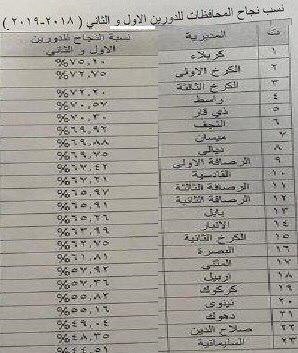 نسب نجاح المحافظات للدورين الاول و الثاني ( ٢٠١٨-٢٠١٩ )
ت المديرية نسبة النجاح للدورين الاول و الثاني
١ كربلاء %٧٥,١٠
٢ الكرخ الاولى %٧٢,٧٥
٣ الكرخ الثالثة %٧٢,٢٠
٤ واسط %٧٠,٥٧
٥ ذي قار %٧٠,٣٠
٦ النجف %٦٩,٩٢
٧ ميسان %٦٩,٨٨
٨ ديالى %٦٩,٧٥
٩ الرصافة الاولى %٦٧,٤٢
١٠ القادسية %٦٧,٣١
١١ الرصافة الثالثة %٦٥,٩٧
١٢ الرصافة الثانية %٦٥,٩١
١٣ بابل %٦٥,٢٦
١٤ الانبار %٦٣,٩٩
١٥ الكرخ الثانية %٦٣,٧٥
١٦ البصرة %٦١,٨١
١٧ المثنى %٥٧,٩٢
١٨ اربيل %٥٧,٣٦
١٩ كركوك %٥٥,٨٢
٢٠ نينوى %٥٥,١٦
٢١ دهوك %٤٩,٠٤
٢٢ صلاح الدين %٤٨,٣٥
٢٣ السليمانية %٤٤,٥١